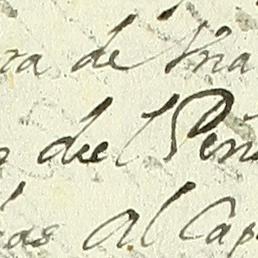 ra de Ina
del Peñ
as al Cap